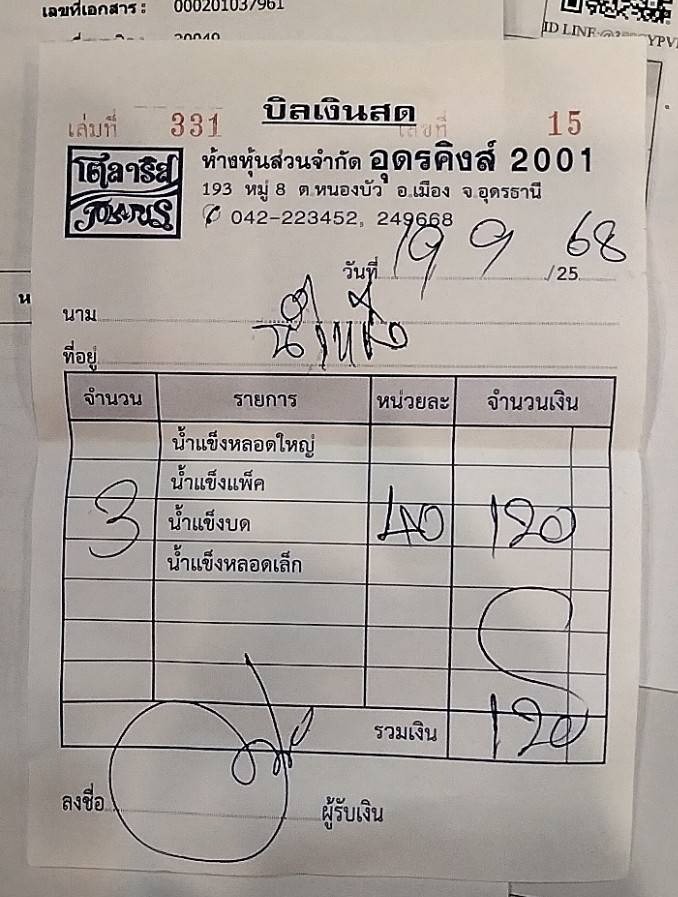 เลขที่เอกสาร : 000201037961
ID LINE:
บิลเงินสด
เล่มที่ 331 เลขที่ 15
โตลาริส
POLARIS
ห้างหุ้นส่วนจำกัด อุดรคิงส์ 2001
193 หมู่ 8 ต.หนองบัว อ.เมือง จ.อุดรธานี
042-223452, 249668
วันที่ 19 9 /25 68
นาม
ที่อยู่
จำนวน รายการ หน่วยละ จำนวนเงิน
น้ำแข็งหลอดใหญ่
น้ำแข็งแพ็ค
3 น้ำแข็งบด 40 120
น้ำแข็งหลอดเล็ก
รวมเงิน 120
ลงชื่อ ผู้รับเงิน